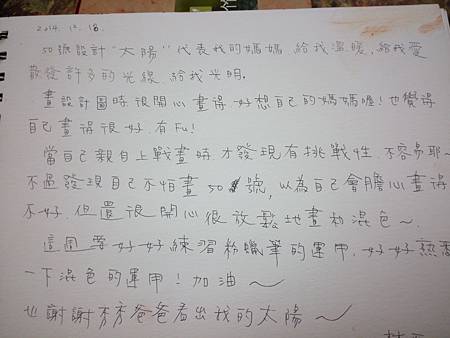 2014. 12. 18.
50號設計"太陽"代表我的媽媽 給我溫暖,給我愛
散發許多的光線 給我光明。
畫設計圖時很開心 畫得好想自己的媽媽喔!也覺得
自己畫得很好.有Fu!
當自己親自上戰畫時.才發現有挑戰性.不容易耶~
不過發現自己不怕畫50號,以為自己會膽心畫得
不好.但還很開心很放鬆地畫和混色~.
這周要好好練習粉蠟筆的運用.好好熟悉
一下混色的運用!加油~
也謝謝秀秀爸爸看出我的太陽~